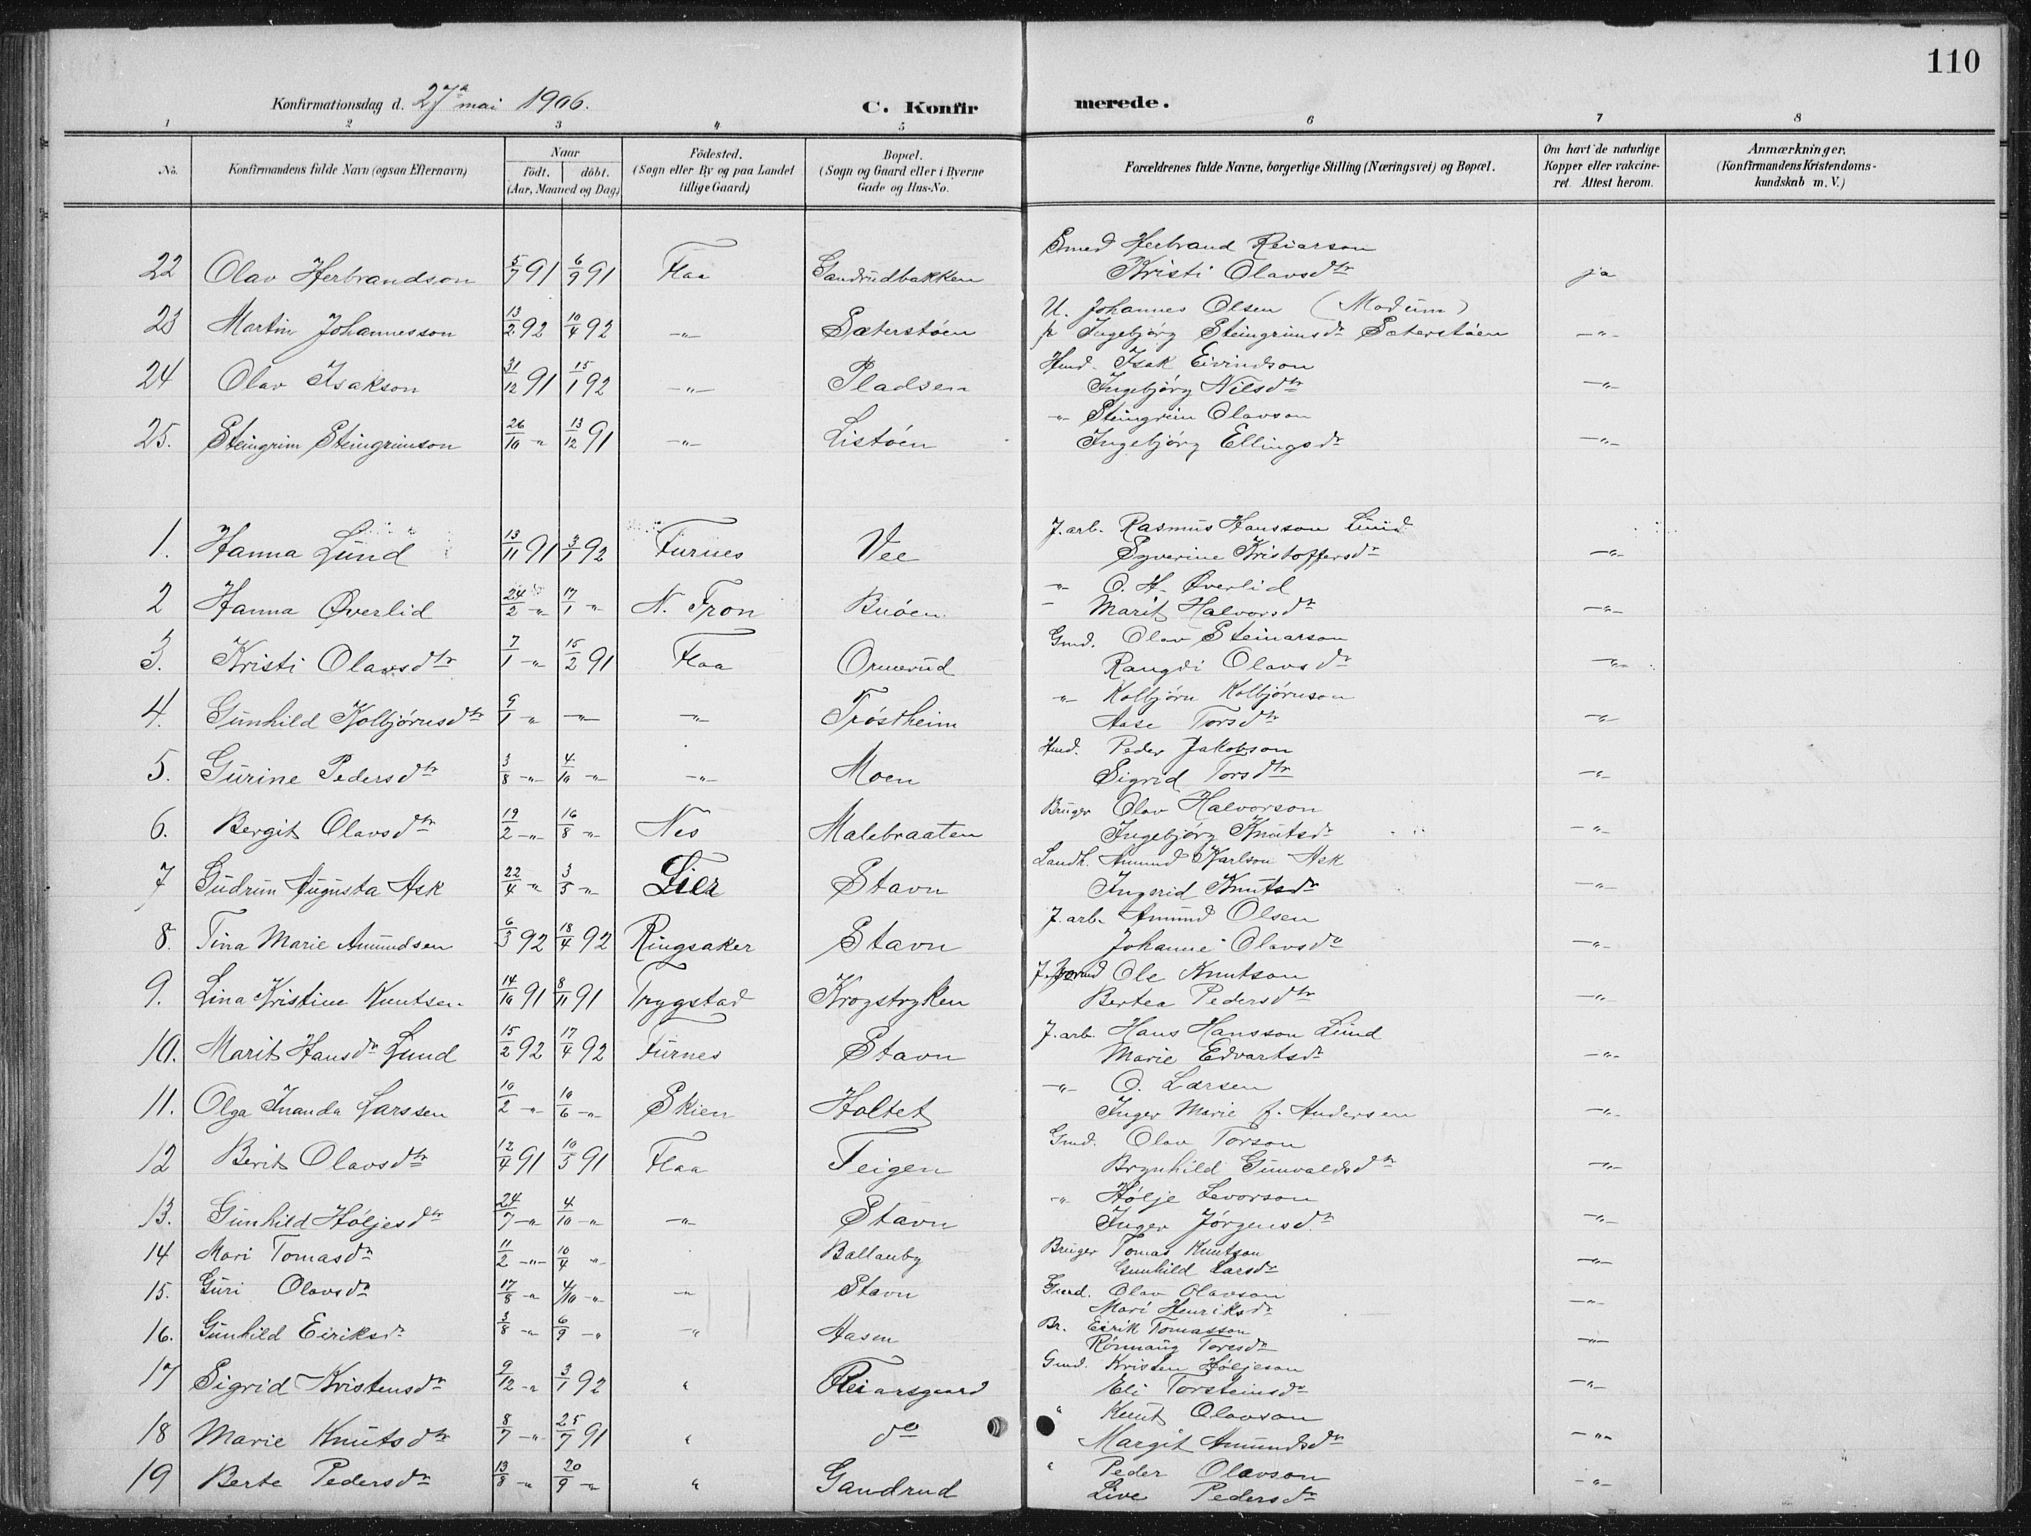 110
Konfirmationsdag d. 27de mai 1906. C. Konfirmerede.
1 2 3 4 5 6 7 8
No. Konfirmandens fulde Navn (ogsaa Efternavn) Naar födt. döbt. (Aar, Maaned og Dag) Födested. (Sogn eller By og paa Landet tillige Gaard) Bopæl. (Sogn og Gaard eller i Byerne Gade og Hus-No. Forældrenes fulde Navne, borgerlige Stilling (Næringsvei) og Bopæl. Om havt de naturlige Kopper eller vakcineret. Attest herom. Anmærkninger. (Konfirmandens Kristendomskundskab m. V.)
22 Olav Herbrandson 5/7 91 6/9 91 Flaa Gandrudbakken Smed Herbrand Reiarson
Kristi Olavsdtr ja
23 Martin Johannesson 13/2 92 10/4 92 -"- Sæterstøen U. Johannes Olsen (Modum)
p Ingebjørg Steingrimsdr Sæterstøen -"-
24 Olav Isakson 31/12 91 15/1 92 -"- Pladsen Hmd. Isak Eivindson
Ingebjørg Nilsdtr -"-
25. Steingrim Steingrimson 26/10 -"- 13/12 91 -"- Listøen -"- Steingrim Olavson
Ingebjørg Ellingsdr -"-
1. Hanna Lund 13/11 91 3/1 92 Furnes Vee J. arb. Rasmus Hansson Lund
Syverine Kristoffersdr -"-
2 Hanna Øverlid 24/2 -"- 17/1 -"- N. Fron Buøen -"- O. H. Øverlid
Marit Halvorsdr -"-
3. Kristi Olavsdtr 7/1 -"- 15/2 91 Flaa Ormerud Gmd. Olav Steinarson
Rangdi Olavsdr -"-
4. Gunhild Kolbjørnsdtr 9/1 -"- -"- -"- Trøstheim -"- Kolbjørn Kolbjørnson
Aase Torsdtr -"-
5. Gurine Pedersdtr 3/8 -"- 4/10 -"- -"- Moen Hmd. Peder Jakobson
Sigrid Torsdtr -"-
6. Bergit Olavsdtr 19/2 -"- 16/8 -"- Nes Malebraaten Bruger Olav Halvorson
Ingebjørg Knutsdr -"-
7 Gudrun Augusta Ask 22/4 -"- 3/5 -"- Lier Stavn Landh. Amund Karlson Ask
Ingerid Knutsdr -"-
8. Tina Marie Amundsen 6/3 92 18/4 92 Ringsaker Stavn J. arb. Amund Olsen
Johanne Olavsdr -"-
9. Lina Kristine Knutsen 14/10 91 8/11 91 Trygstad Krogstryken Ole Knutson
Bertea Pedersdtr -"-
10. Marit Hansdr Lund 15/2 92 17/4 92 Furnes Stavn J. arb. Hans Hansson Lund
Marie Edvartsdr -"-
11. Olga Inanda Larssen 10/2 -"- 10/6 -"- Skien Holtet -"- O. Larsen
Inger Marie f. Andersen -"-
12 Berit Olavsdtr 12/4 91 10/5 91 Flaa Teigen Gmd. Olav Torson
Brynhild Gunvaldsdtr -"-
13. Gunhild Høljesdtr 24/7 -"- 4/10 -"- -"- Stavn -"- Hølje Levorson
Inger Jørgensdr -"-
14 Mari Tomasdr 11/2 -"- 10/4 -"- Ballanby Bruger Tomas Knutson
Gunhild Larsdr -"-
15. Guri Olavsdr 17/8 -"- 4/10 -"- -"- Stavn Gmd. Olav Olavson
Mari Henriksdr -"-
16. Gunhild Eiriksdr 3/8 -"- 6/9 -"- -"- Aasen Br. Eirik Tomasson
Rønnaug Torsdr -"-
17 Sigrid Kristensdr 9/12 -"- 3/1 92 " Reiarsgaard Gmd. Kristen Høljeson
Eli Torsteinsdr -"-
18 Marie Knutsdtr 8/7 -"- 25/7 91 " do " Knut Olavson
Margit Amundsdr -"-
19 Berte Pedersdr 13/8 -"- 20/9 -"- " Gandrud " Peder Olavson
Live Pedersdr -"-